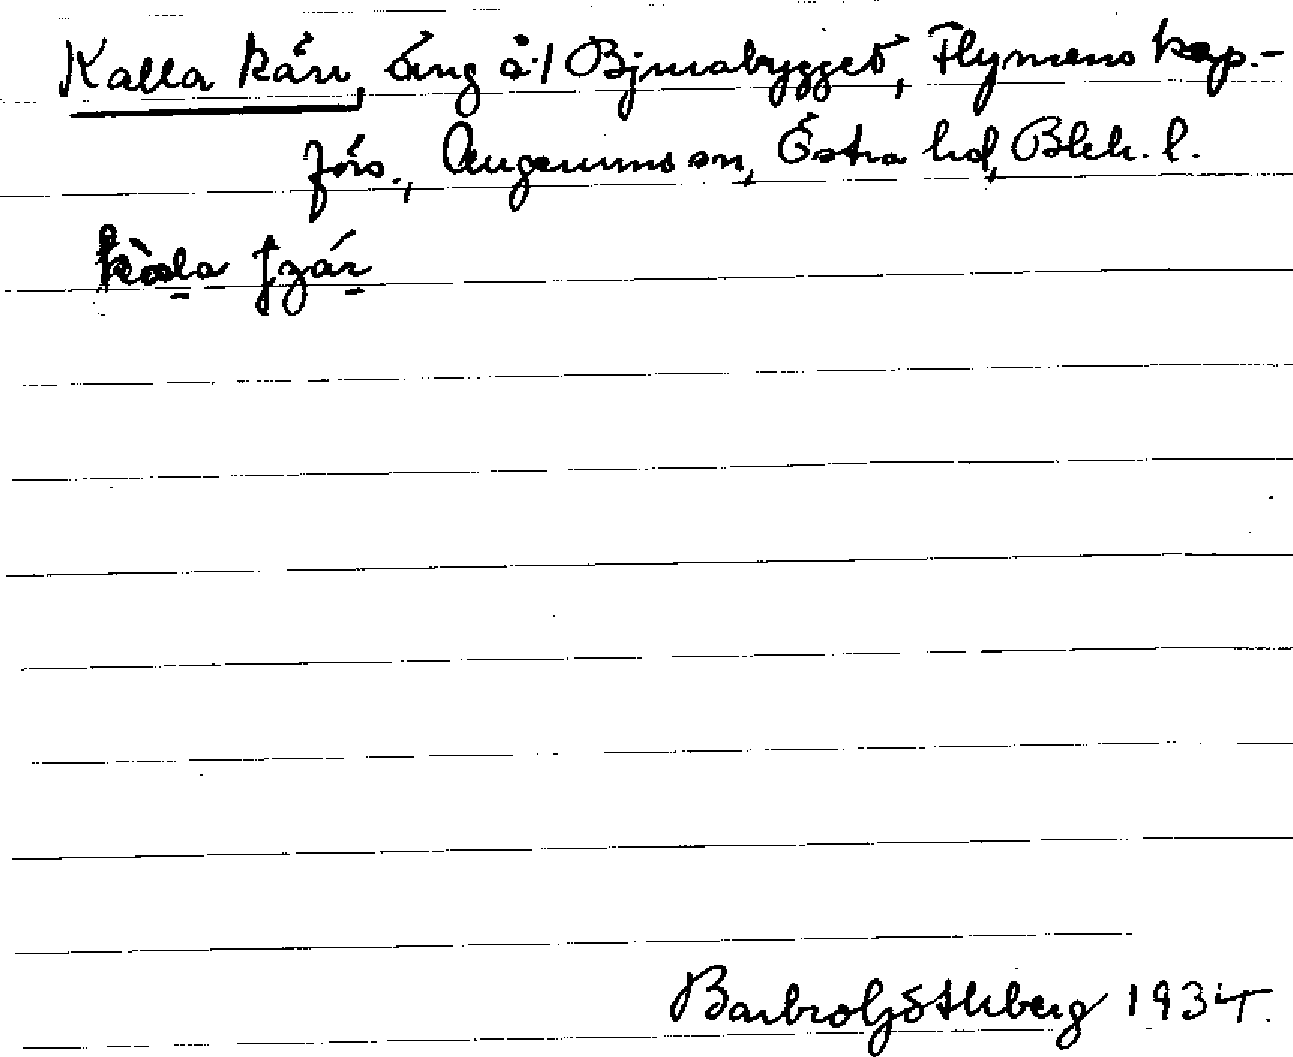 Kalla kärr, äng å Björabygget, Flymens kap.-
förs., Augerums sn, Östra hd, Blek. l.
kàla
Barbro Göthberg 1934.